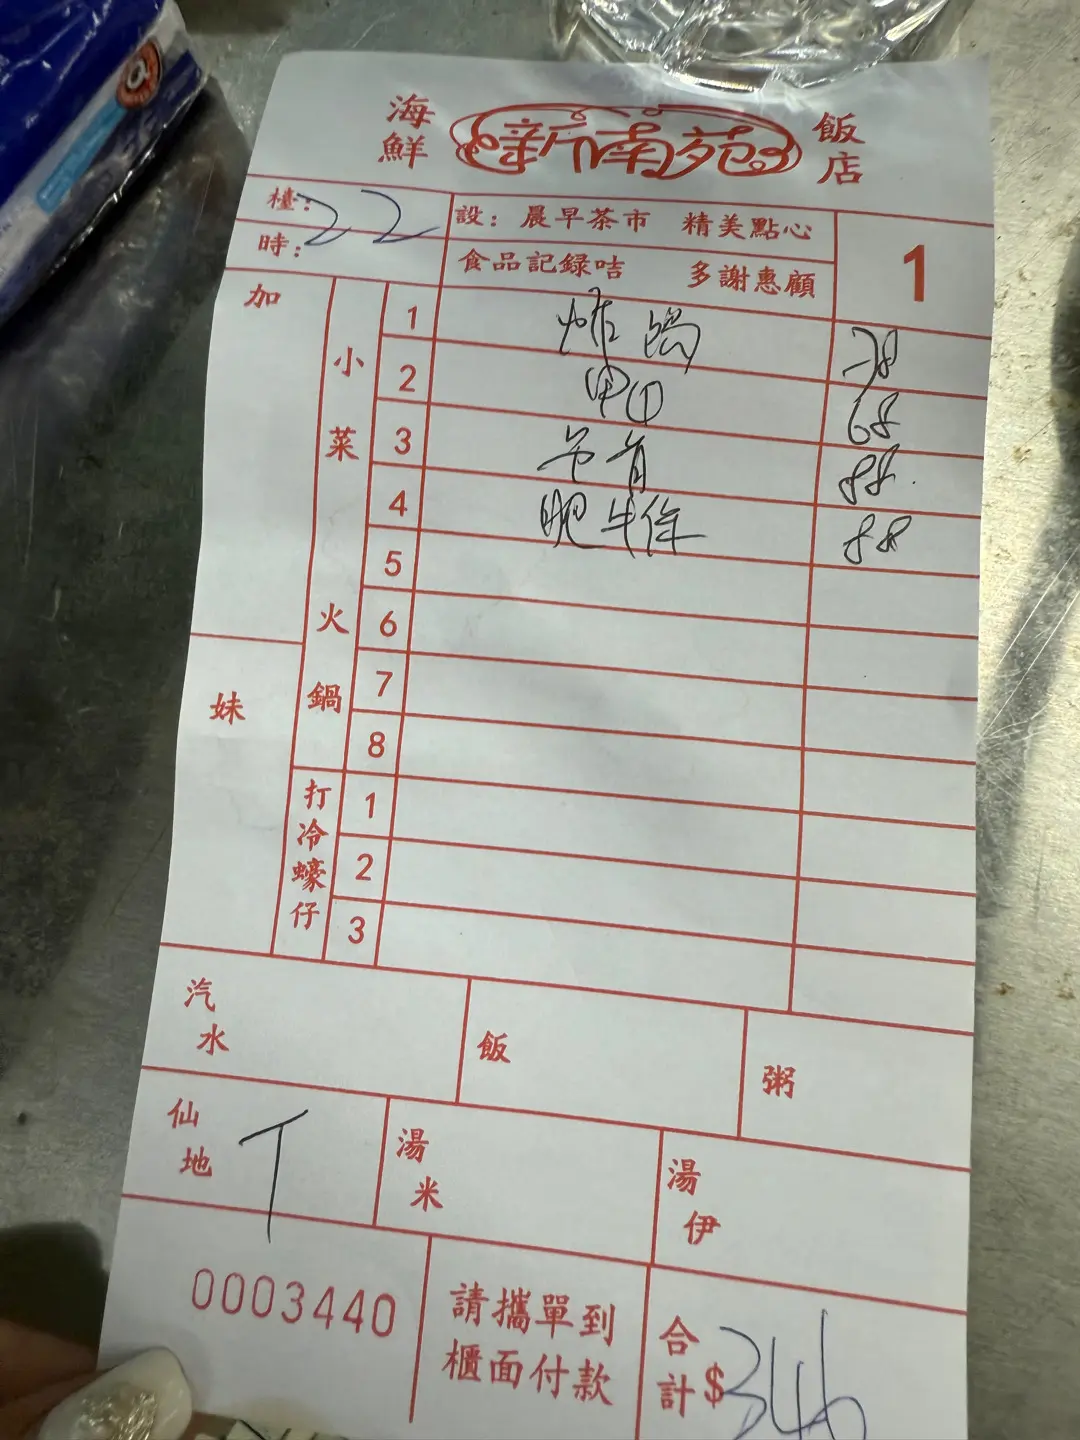 海鮮 新南苑 飯店
檯：22 設：晨早茶市 精美點心
時： 食品記録咭 多謝惠顧 1
加
小菜
1 78
2 甲 68
3 88
4 肥牛 88
5
火鍋
6
妹
7
8
打冷蠔仔
1
2
3
汽水 飯 粥
仙地 T 湯米 湯伊
0003440 請攜單到櫃面付款 合計$346